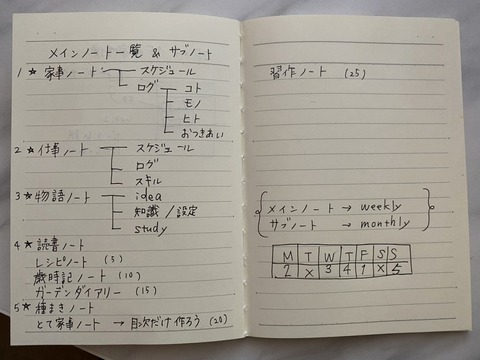 メインノート一覧 & サブノート
1 ★ 家事ノート スケジュール
ログ コト
モノ
ヒト
おつきあい
2 ★ 仕事ノート スケジュール
ログ
スキル
3 ★ 物語ノート idea
知識/設定
study
4 ★ 読書ノート
レシピノート (5)
歳時記ノート (10)
ガーデンダイアリー (15)
5 ★ 種まきノート
とて家事ノート → 目次だけ作ろう (20)
習作ノート (25)
メインノート → weekly
サブノート → monthly
M T W T F S S
2 × 3 4 1 × 5